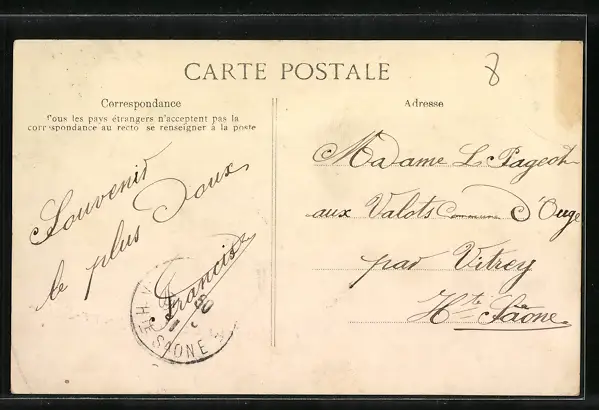 CARTE POSTALE
8
Correspondance
Tous les pays étrangers n'acceptent pas la
correspondance au recto se renseigner à la poste
Adresse
Souvenir
le plus Doux
Francis
Madame L Pageot
aux Valots Commune D'Ouge
par Vitrey
Hte Saône
HTE SAONE